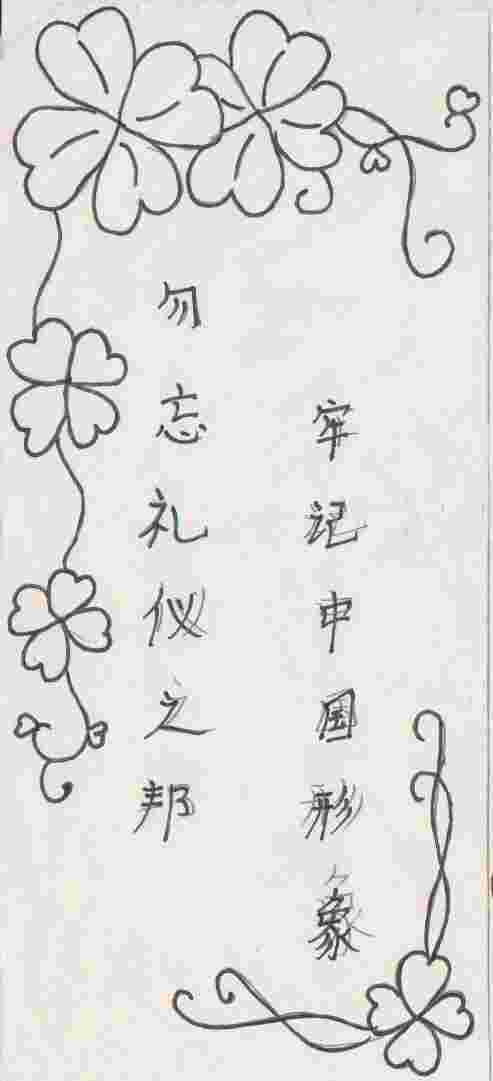 勿忘礼仪之邦
牢记中国形象